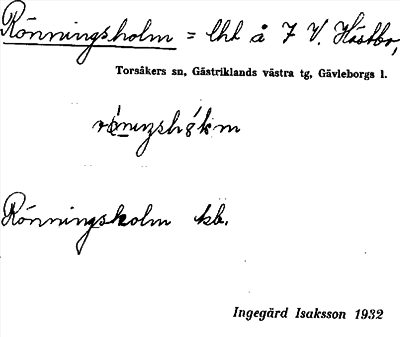 Rönningsholm = lhl å 7 V. Hästbo,
Torsåkers sn, Gästriklands västra tg, Gävleborgs l.
Rönningsholm kb.
Ingegärd Isaksson 1932